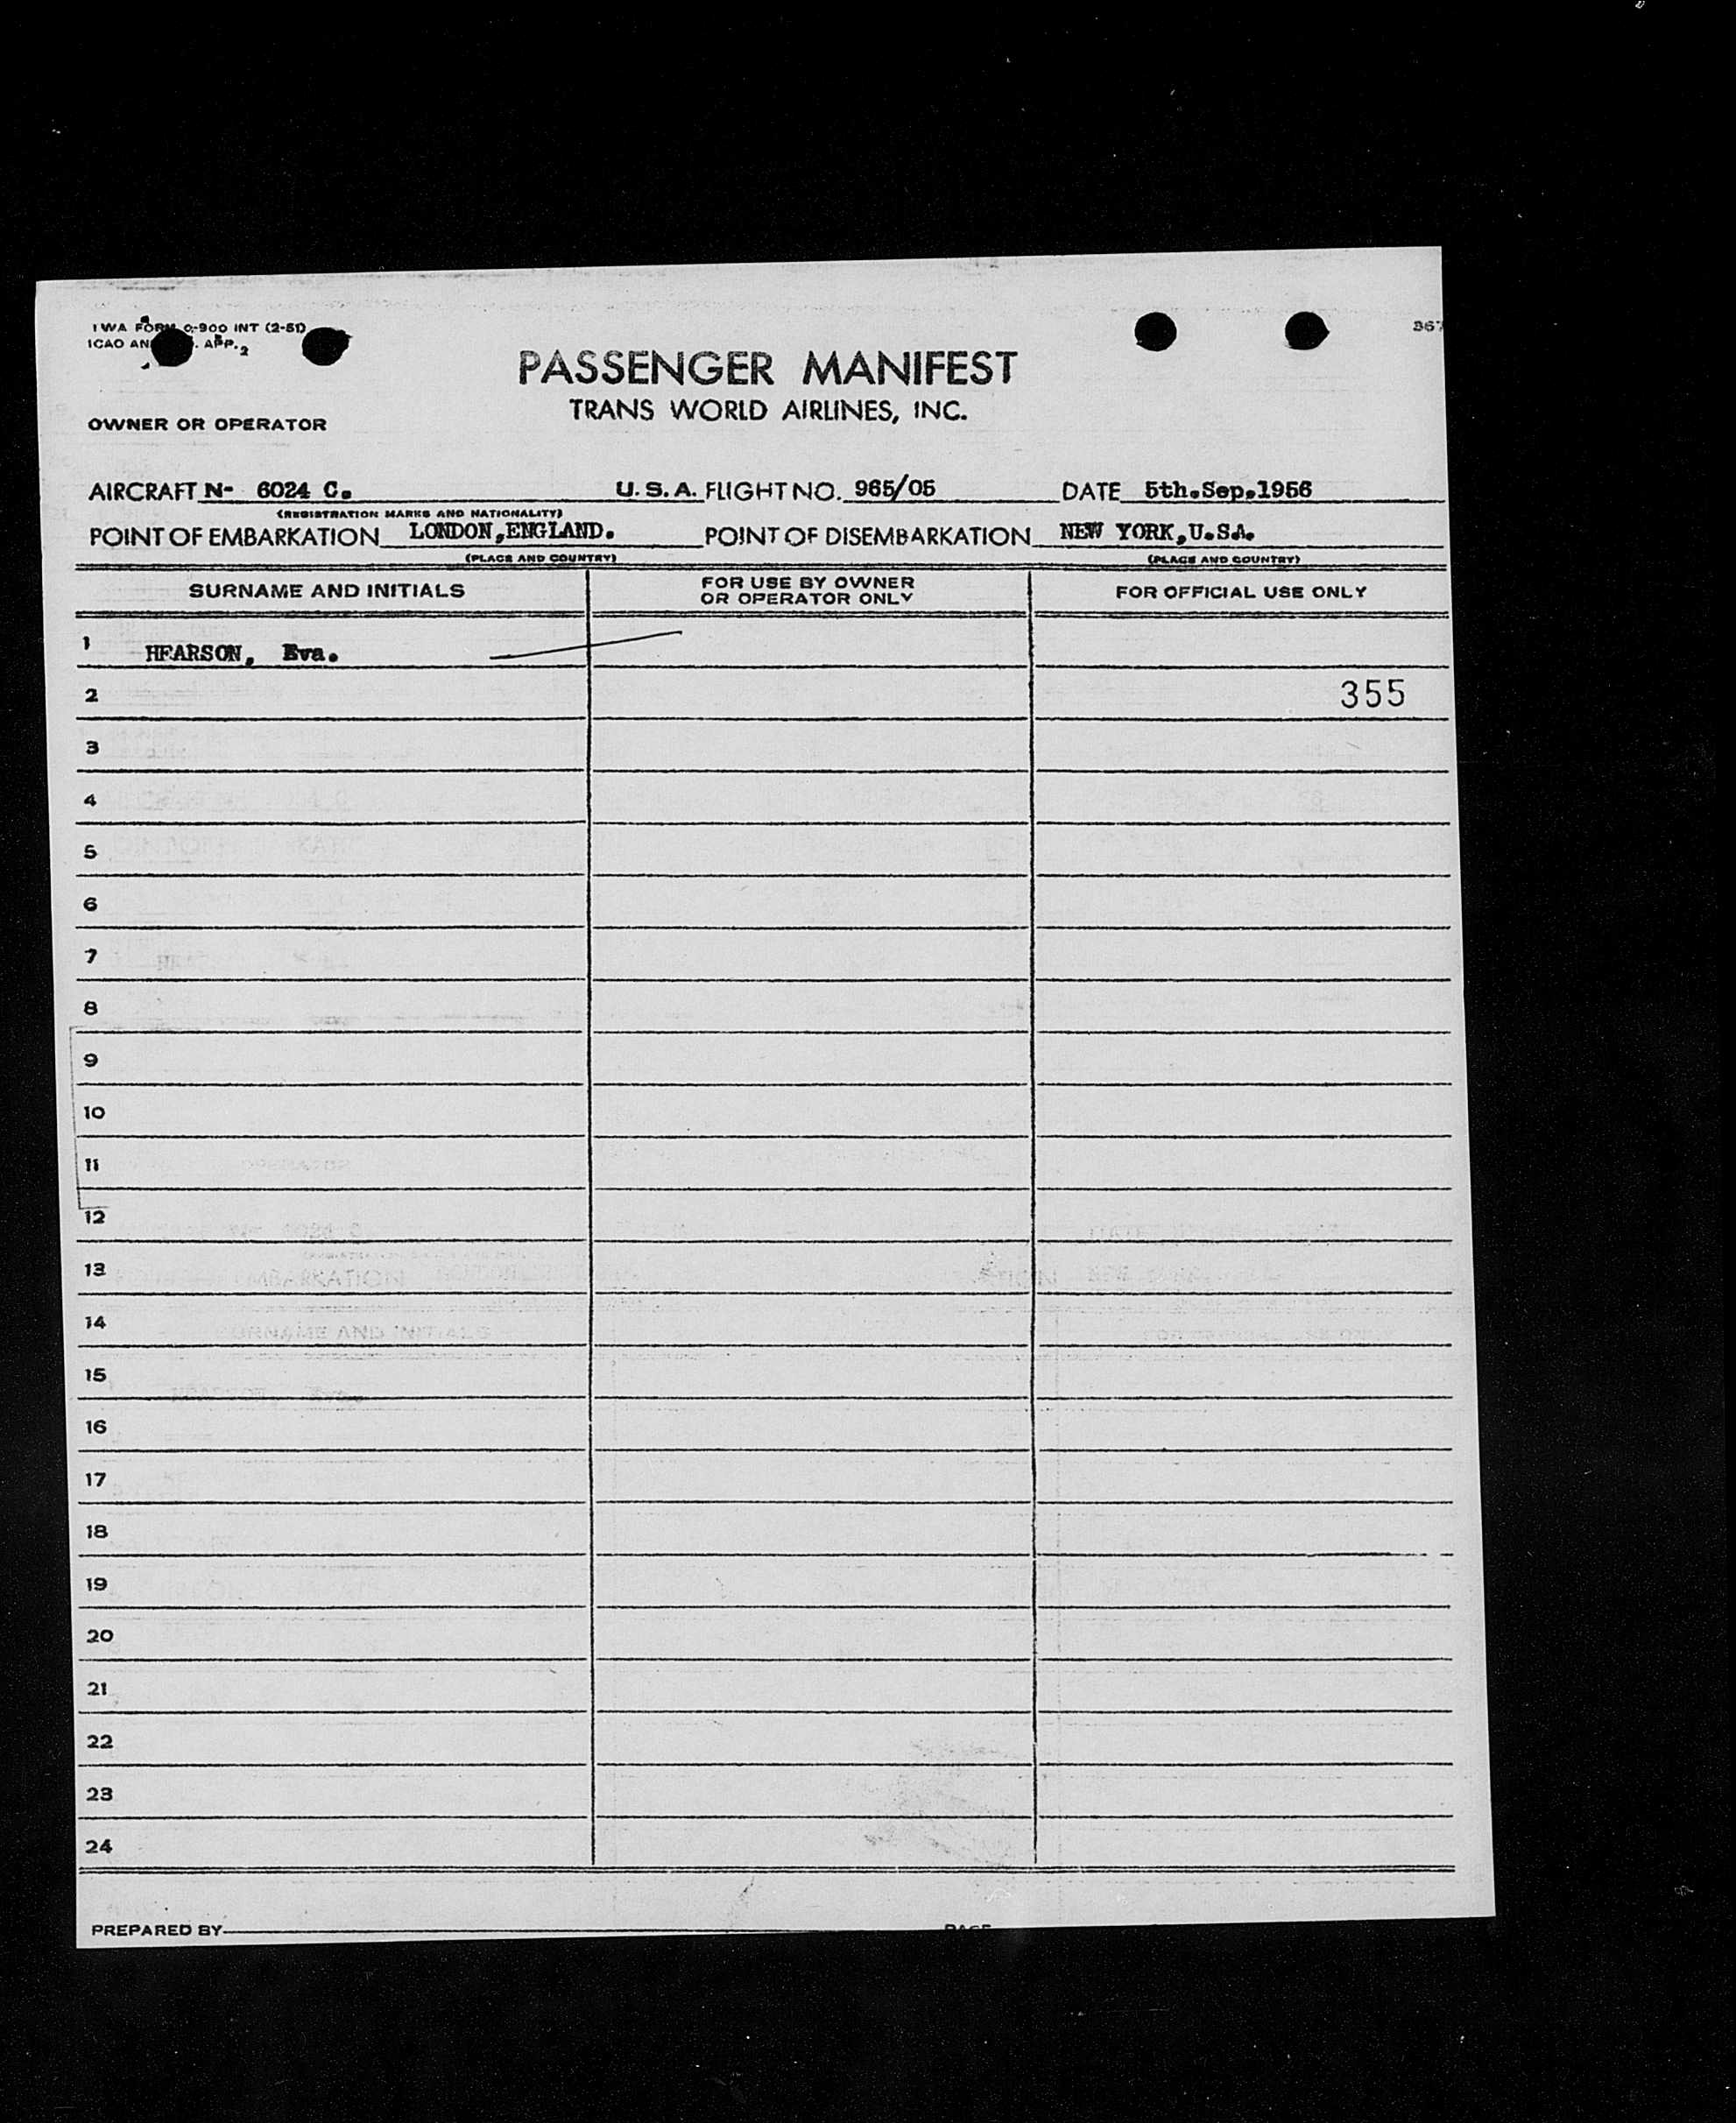 TWA FORM O-900 INT (2-51)
367
ICAO AN . APP. 2
PASSENGER MANIFEST
TRANS WORLD AIRLINES, INC.
OWNER OR OPERATOR
AIRCRAFT N- 6024 C. U.S.A. FLIGHT NO. 965/05 DATE 5th.Sep.1956
(REGISTRATION MARKS AND NATIONALITY)
POINT OF EMBARKATION LONDON,ENGLAND. POINT OF DISEMBARKATION NEW YORK,U.S.A.
(PLACE AND COUNTRY) (PLACE AND COUNTRY)
SURNAME AND INITIALS
FOR USE BY OWNER
OR OPERATOR ONLY
FOR OFFICIAL USE ONLY
1 HEARSON, Eva.
2 355
3
4
5
6
7
8
9
10
11
12
13
14
15
16
17
18
19
20
21
22
23
24
PREPARED BY PAGE